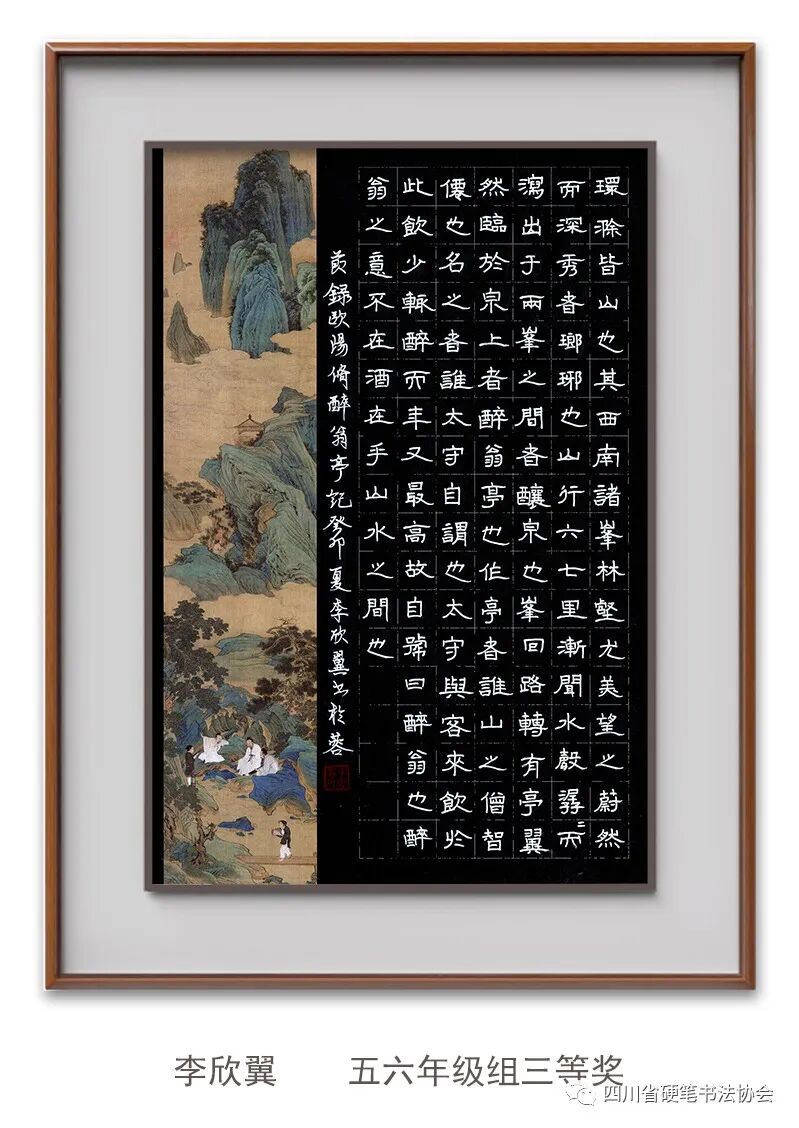 環滁皆山也其西南諸峯林壑尤美望之蔚然
而深秀者瑯琊也山行六七里漸聞水聲潺二而
瀉出于兩峯之間者釀泉也峯回路轉有亭翼
然臨於泉上者醉翁亭也作亭者誰山之僧智
僊也名之者誰太守自謂也太守與客來飲於
此飲少輒醉而年又最高故自號曰醉翁也醉
翁之意不在酒在乎山水之間也
錄欧陽脩醉翁亭記癸卯夏李欣翼书於蓉
李欣翼 五六年级组三等奖
四川省硬笔书法协会